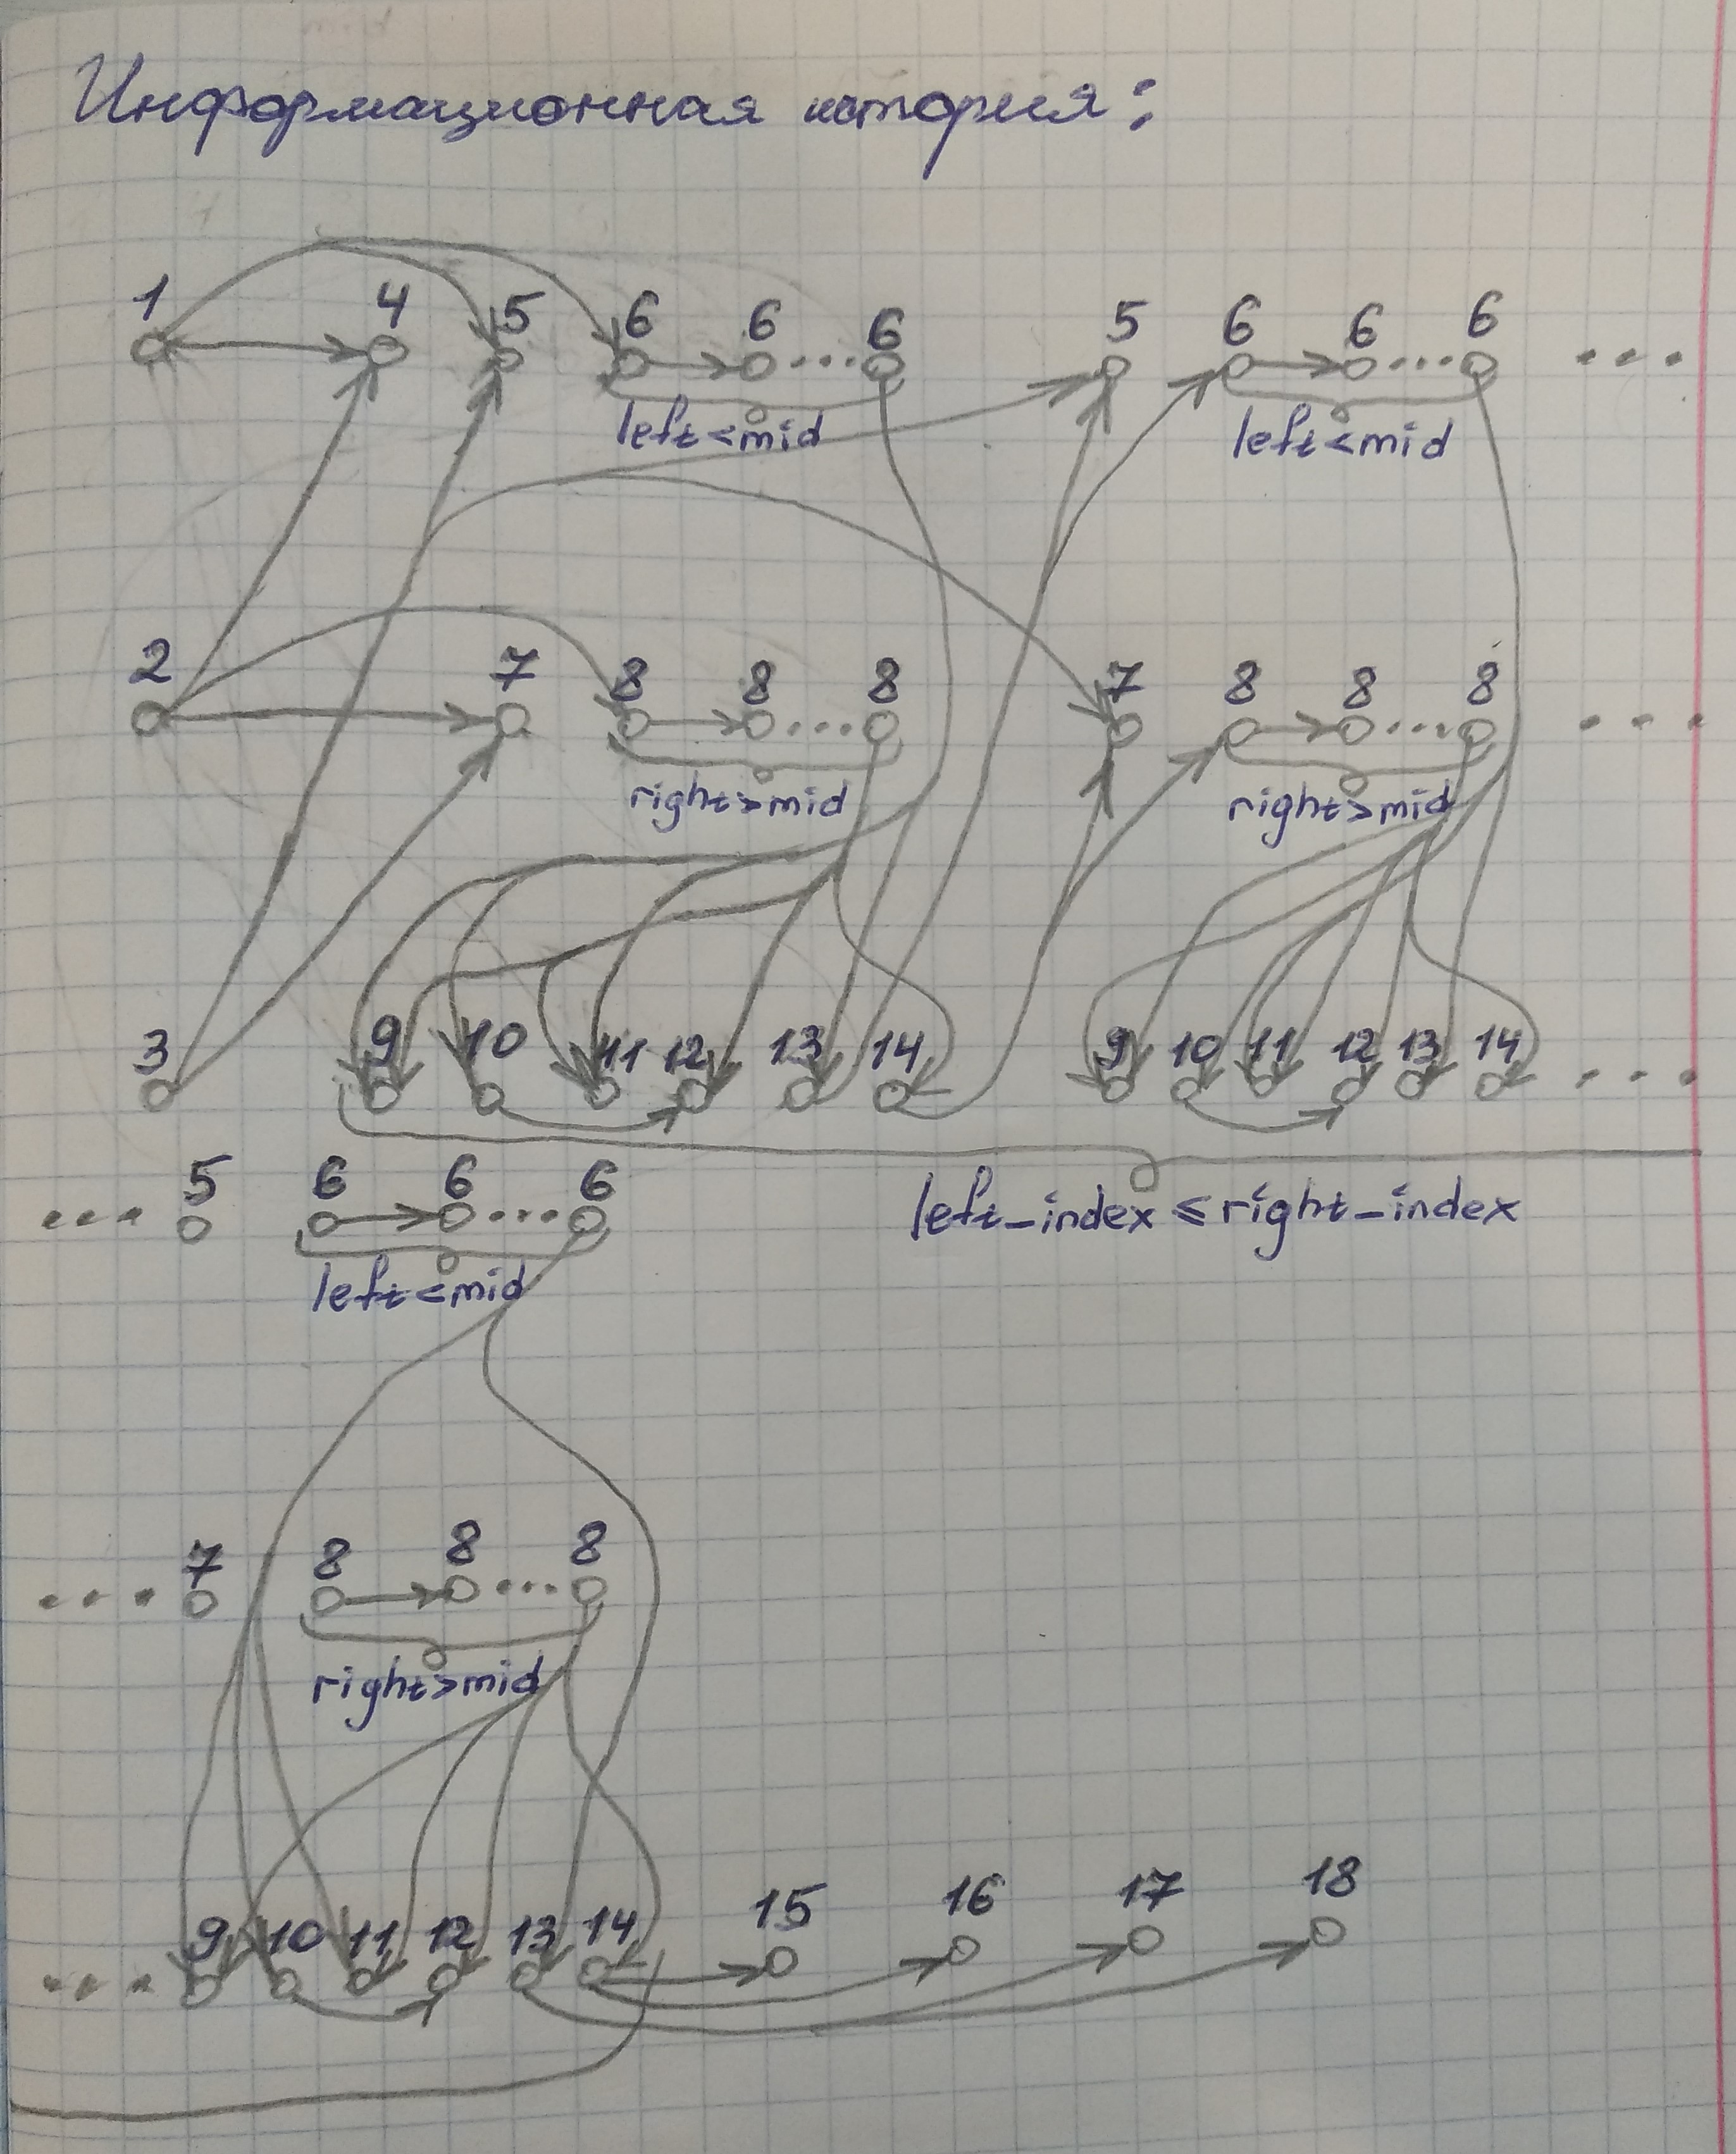 Информационная история:
1 4 5 6 6 ... 6 5 6 6 ... 6 ...
left<mid left<mid
2 7 8 8 ... 8 7 8 8 ... 8 ...
right>mid right>mid
3 9 10 11 12 13 14 9 10 11 12 13 14 ...
... 5 6 6 ... 6
left_index ≤ right_index
left<mid
... 7 8 8 ... 8
right>mid
... 9 10 11 12 13 14 15 16 17 18